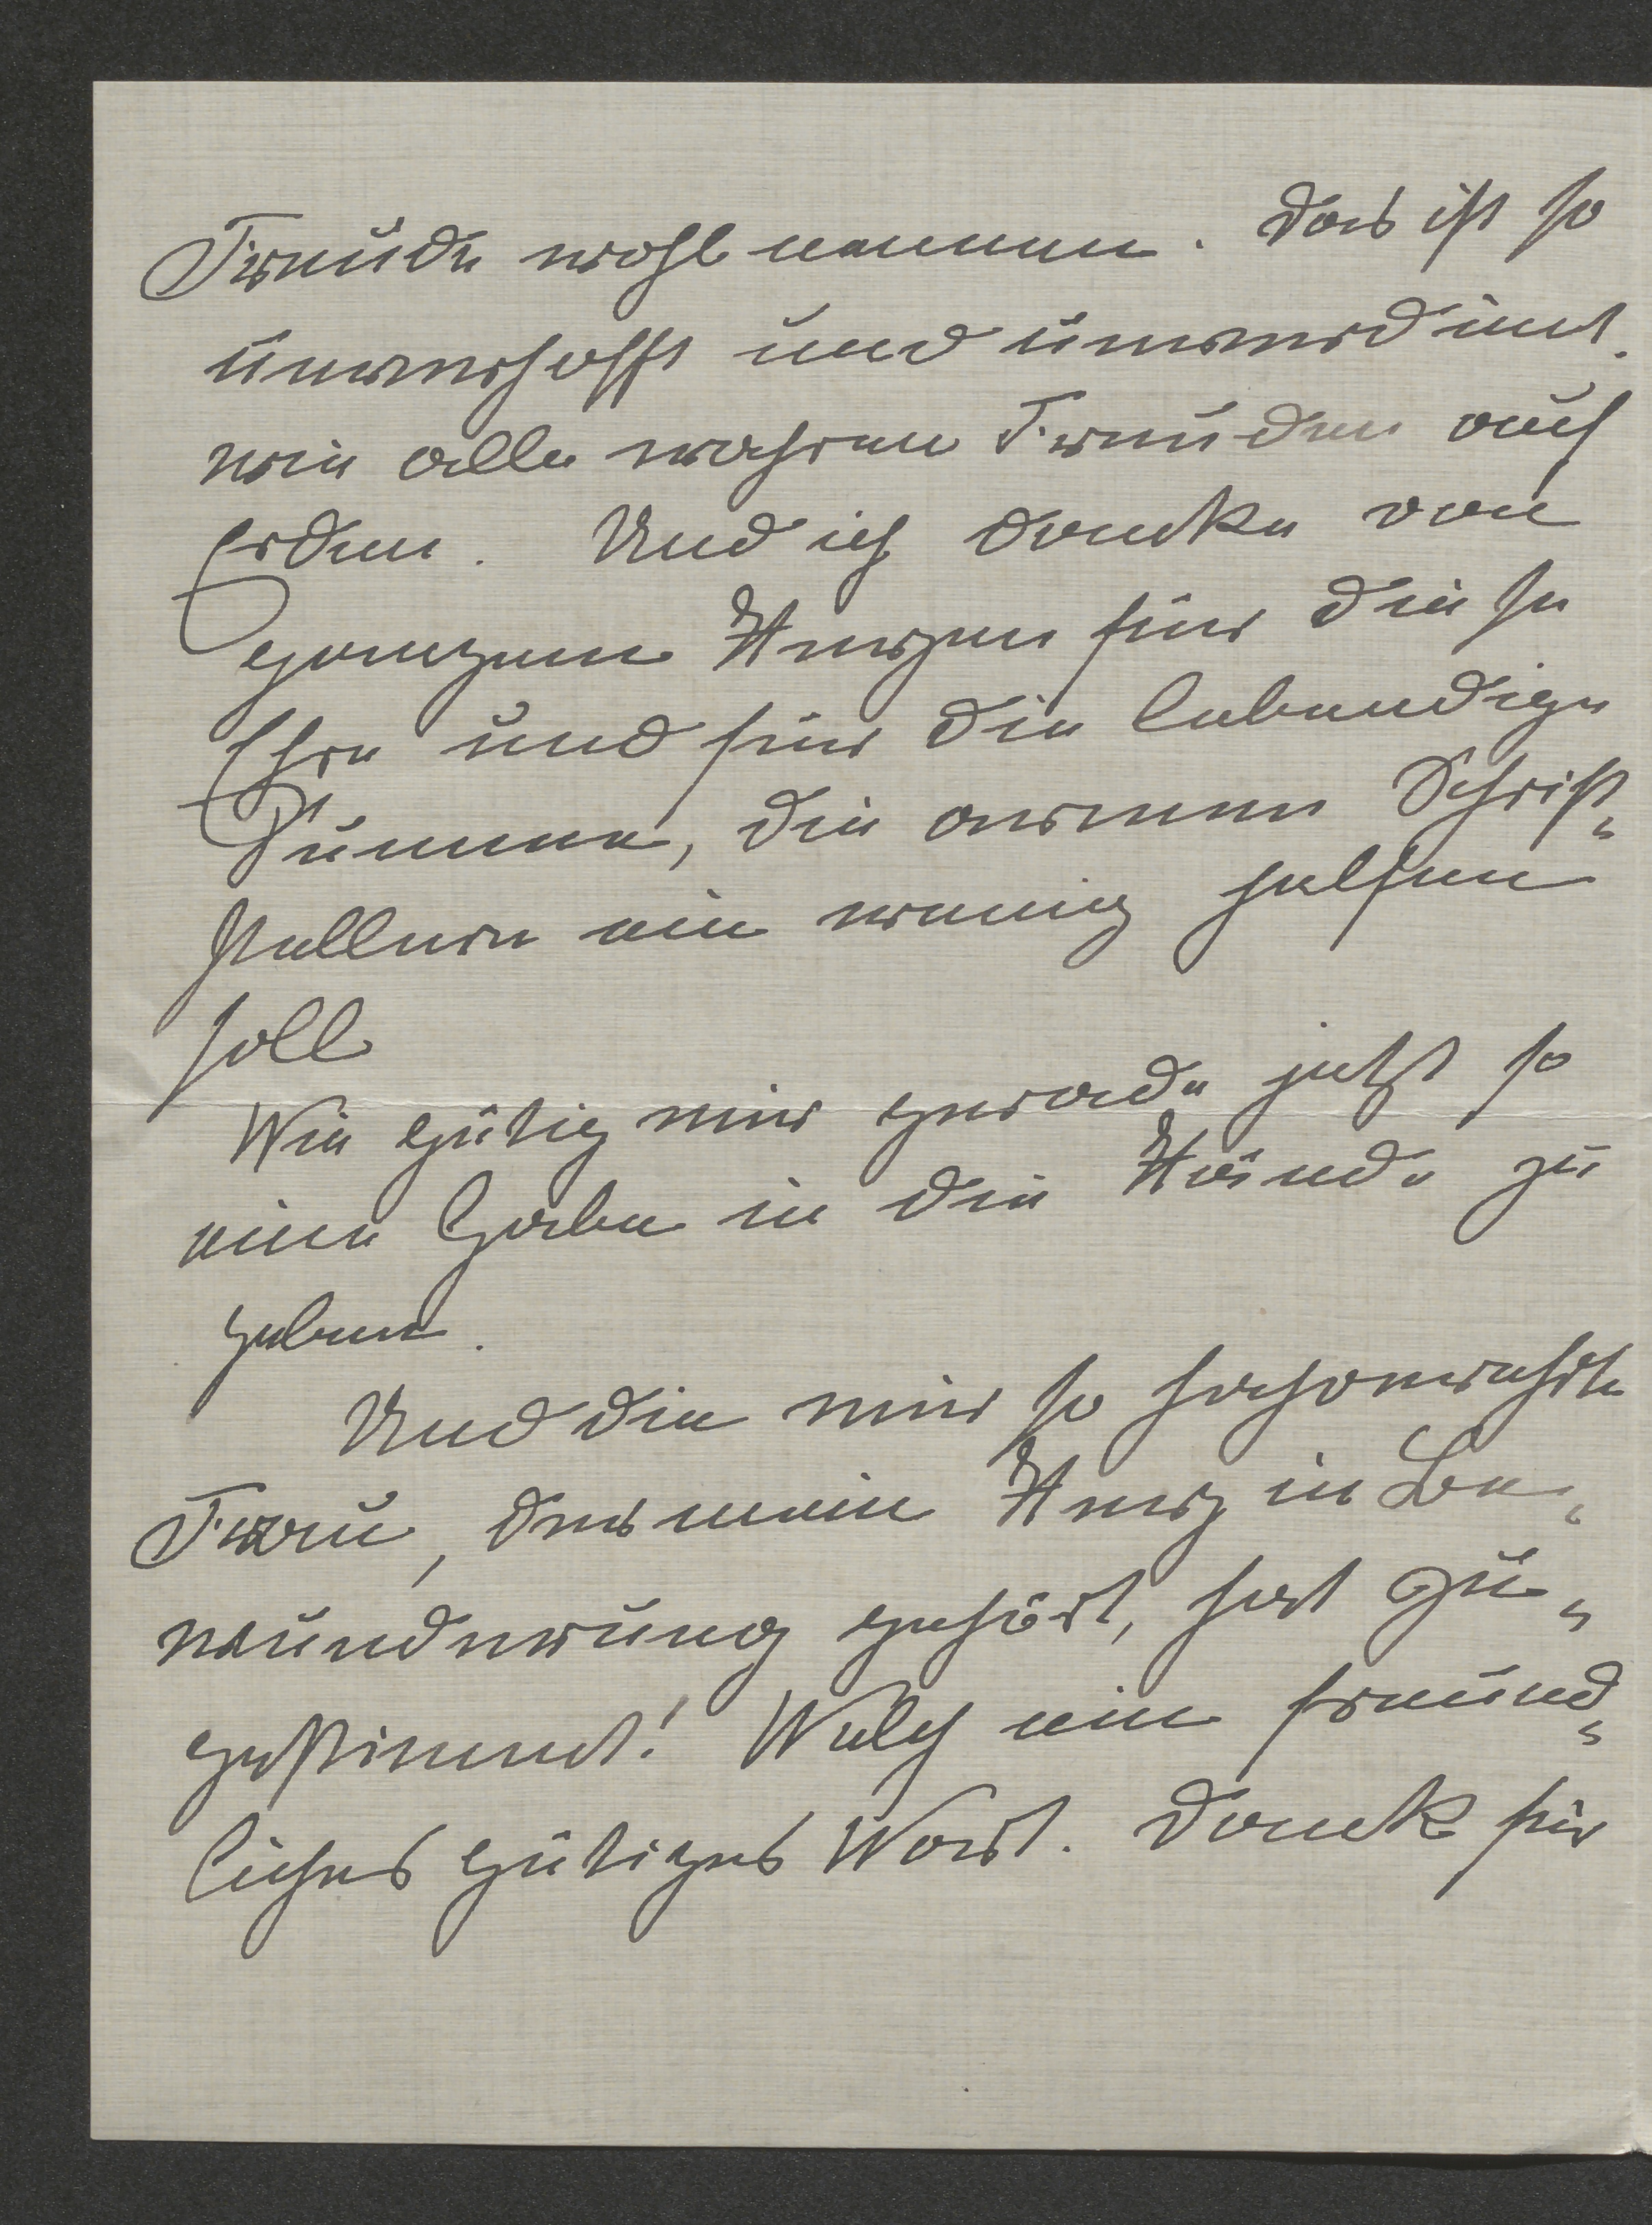 Freude wohl nennen. Das ist so
unverhofft und unverdient.
wie alle wahren Freuden auf
Erden. Und ich danke von
ganzem Herzen für diese
Ehre und für die lebendige
Summe, die armen Schrift-
stellern ein wenig helfen
soll
Wie gütig mir gerade jetzt so
eine Gabe in die Hände zu
geben.
Und die mir so sehr verehrte
Frau, der mein Herz in Be-
wunderung gehört, hat zu-
gestimmt! Welch ein freund-
liches gütiges Wort. Dank für